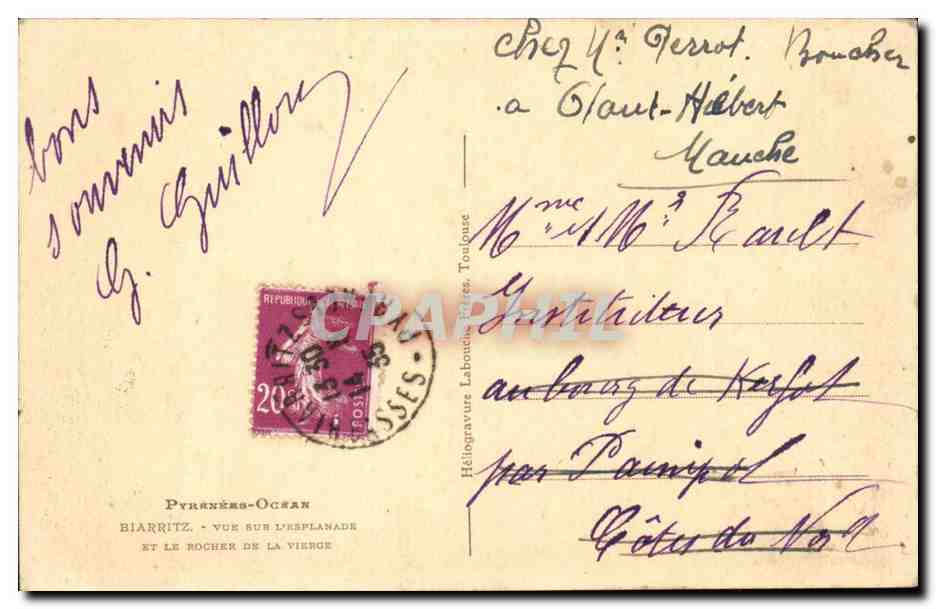 bons
souvenirs
G. Guillou
Chez Mr Perrot. Boucher
a Haut-Hébert
Manche
Mme et Mr Rault
Instituteur
au bourg de Kerfot
par Paimpol
Côtes du Nord
Héliogravure Labouche Frères, Toulouse
CPAPHIL
REPUBLIQUE
20
BIARRITZ
13 30
14
35
PYRÉNÉES-OCÉAN
BIARRITZ. - VUE SUR L'ESPLANADE
ET LE ROCHER DE LA VIERGE